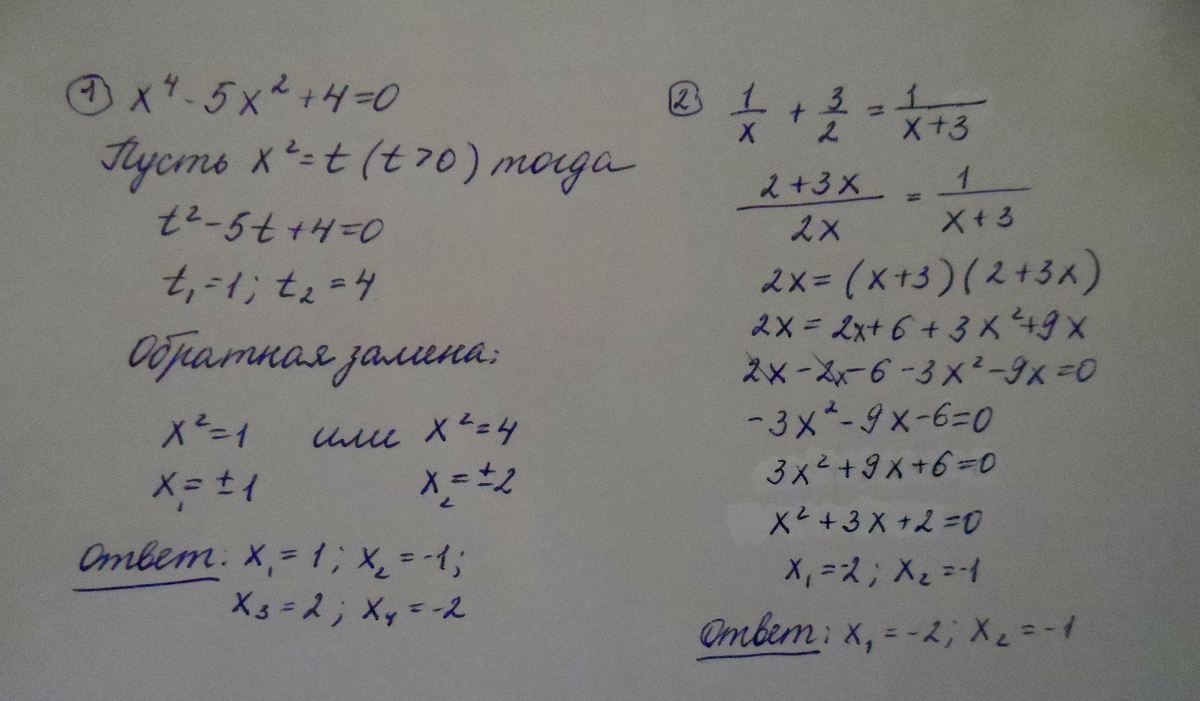 ① x⁴ - 5x² + 4 = 0
Пусть x² = t (t > 0) тогда
t² - 5t + 4 = 0
t₁ = 1; t₂ = 4
Обратная замена:
x² = 1 или x² = 4
x₁ = ±1 x₂ = ±2
Ответ: x₁ = 1; x₂ = -1;
x₃ = 2; x₄ = -2
2 1/x + 3/2 = 1/(x+3)
(2+3x)/(2x) = 1/(x+3)
2x = (x+3)(2+3x)
2x = 2x + 6 + 3x² + 9x
2x - 2x - 6 - 3x² - 9x = 0
-3x² - 9x - 6 = 0
3x² + 9x + 6 = 0
x² + 3x + 2 = 0
x₁ = -2; x₂ = -1
Ответ: x₁ = -2; x₂ = -1